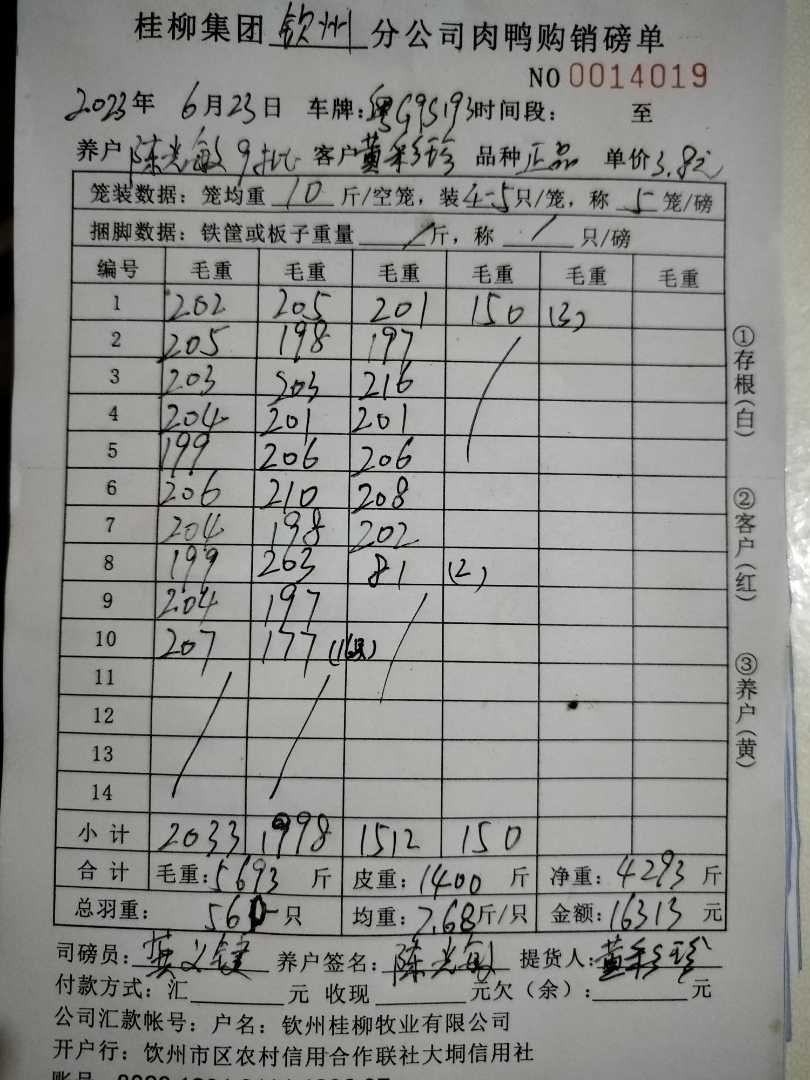 桂柳集团钦州分公司肉鸭购销磅单
NO 0014019
2023年 6月23日 车牌:粤G9S193时间段: 至
养户 陈光敏9批 客户黄彩珍 品种正品 单价3.8元
笼装数据: 笼均重 10 斤/空笼, 装4-5只/笼, 称 5 笼/磅
捆脚数据: 铁筐或板子重量 / 斤, 称 / 只/磅
编号 毛重 毛重 毛重 毛重 毛重 毛重
1 202 205 201 150 (3)
2 205 198 197
3 203 203 216
4 204 201 201
5 199 206 206
6 206 210 208
7 204 198 202
8 199 203 81 (2)
9 204 197
10 207 177 (16只)
11
12
13
14
小计 2033 1998 1512 150
合计 毛重:5693 斤 皮重:1400 斤 净重:4293 斤
总羽重: 560只 均重:7.68斤/只 金额:16313 元
司磅员: 养户签名:陈光敏 提货人:黄彩珍
付款方式: 汇 元 收现 元欠(余): 元
公司汇款帐号: 户名: 钦州桂柳牧业有限公司
开户行: 钦州市区农村信用合作联社大垌信用社
①存根(白)
②客户(红)
③养户(黄)